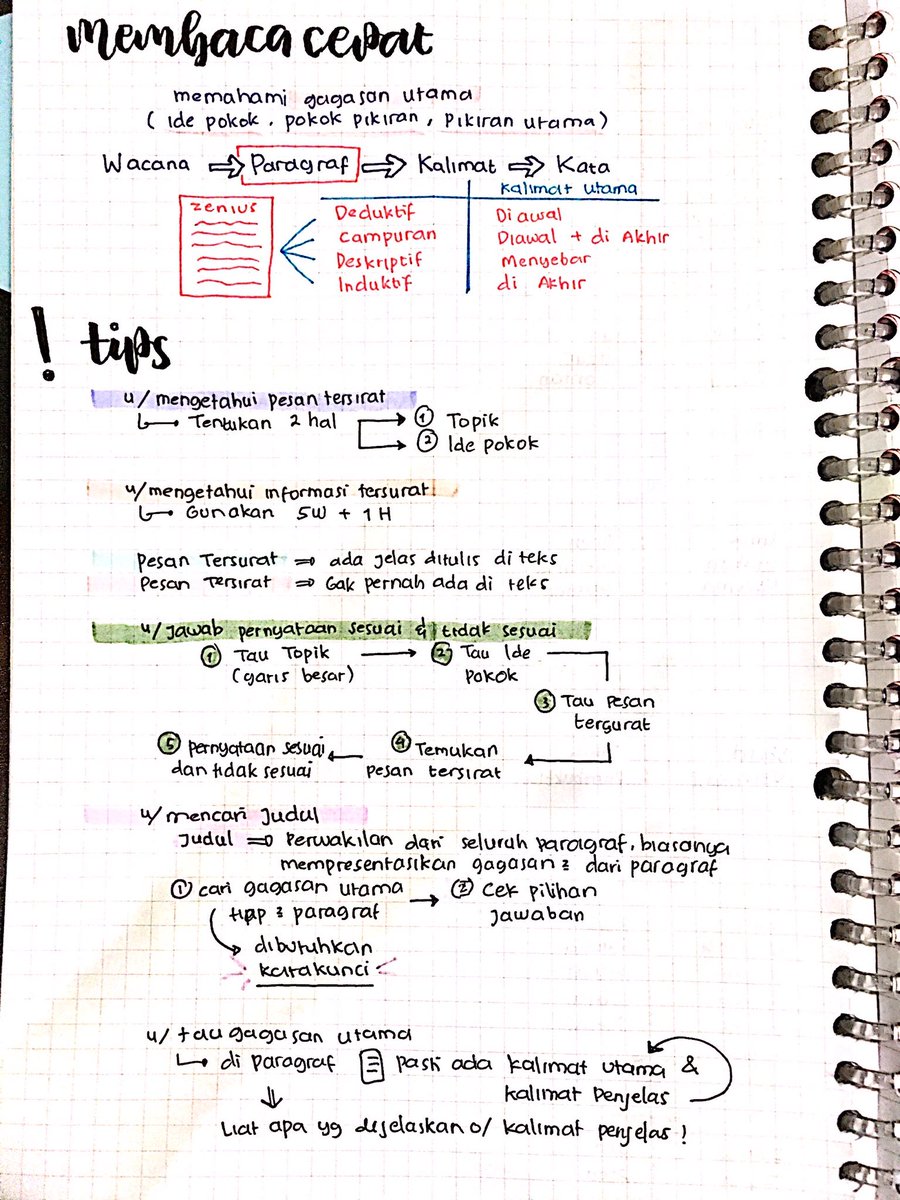 membaca cepat
memahami gagasan utama
(ide pokok, pokok pikiran, pikiran utama)
Wacana ⇒ Paragraf ⇒ Kalimat ⇒ Kata
kalimat utama
zenius
Deduktif Diawal
campuran Diawal + di Akhir
Deskriptif menyebar
Induktif di Akhir
! tips
u/ mengetahui pesan tersirat
↳ Tentukan 2 hal → ① Topik
→ ② Ide pokok
u/ mengetahui informasi tersurat
↳ Gunakan 5W + 1H
Pesan Tersurat ⇒ ada jelas ditulis di teks
Pesan Tersirat ⇒ Gak pernah ada di teks
u/ Jawab pernyataan sesuai & tidak sesuai
① Tau Topik → ② Tau Ide
(garis besar) pokok
③ Tau pesan
tergurat
⑤ pernyataan sesuai ← ④ Temukan
dan tidak sesuai pesan tersirat
u/ mencari Judul
Judul ⇒ Perwakilan dari seluruh paragraf, biasanya
mempresentasikan gagasan2 dari paragraf
① cari gagasan utama → ② Cek pilihan
tiap2 paragraf Jawaban
dibutuhkan
kata kunci
u/ tau gagasan utama
↳ di paragraf pasti ada kalimat utama &
kalimat penjelas
⇓
Liat apa yg dijelaskan o/ kalimat penjelas!